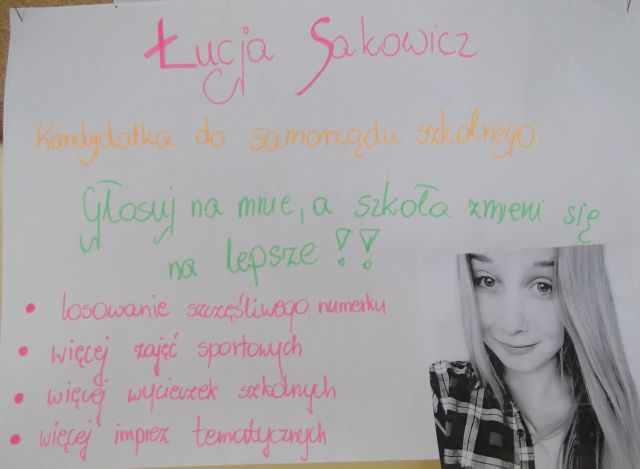 Łucja Sakowicz
Kandydatka do samorządu szkolnego.
Głosuj na mnie, a szkoła zmieni się
na lepsze!!
• losowanie szczęśliwego numerku
• więcej zajęć sportowych
• więcej wycieczek szkolnych
• więcej imprez tematycznych